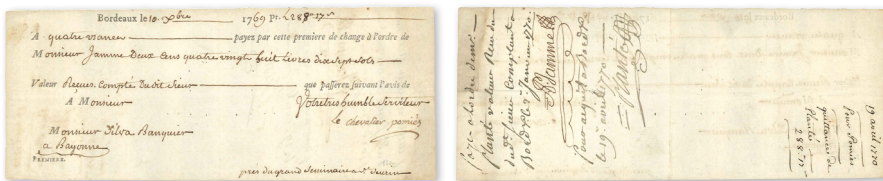 Bordeaux le 10. xbre 1769 Pr. L 288" 17s
A quatre usances payez par cette premiere de change à l'ordre de
Monsieur Jamme Deux Cens quatre vingt huit Livres dix sept sols
Valeur Reçue Compté dudit Sieur que passerez suivant l'avis de
A Monsieur Votre tres humble Serviteur
le chevalier pomiès
Monsieur Silva Banquier
a Bayonne
PREMIERE.
pres du grand Seminaire a St. Seurin
payé a l'ordre de mr.
planté valeur Reçu du
sieur Comptant a
Bordx le 2e Janvier 1770
B Jamme
pour acquit a Bordx
le 19 avril 1770
Planté
19 avril 1770
Pour Pomies
quittance de
Planté
288" 17s